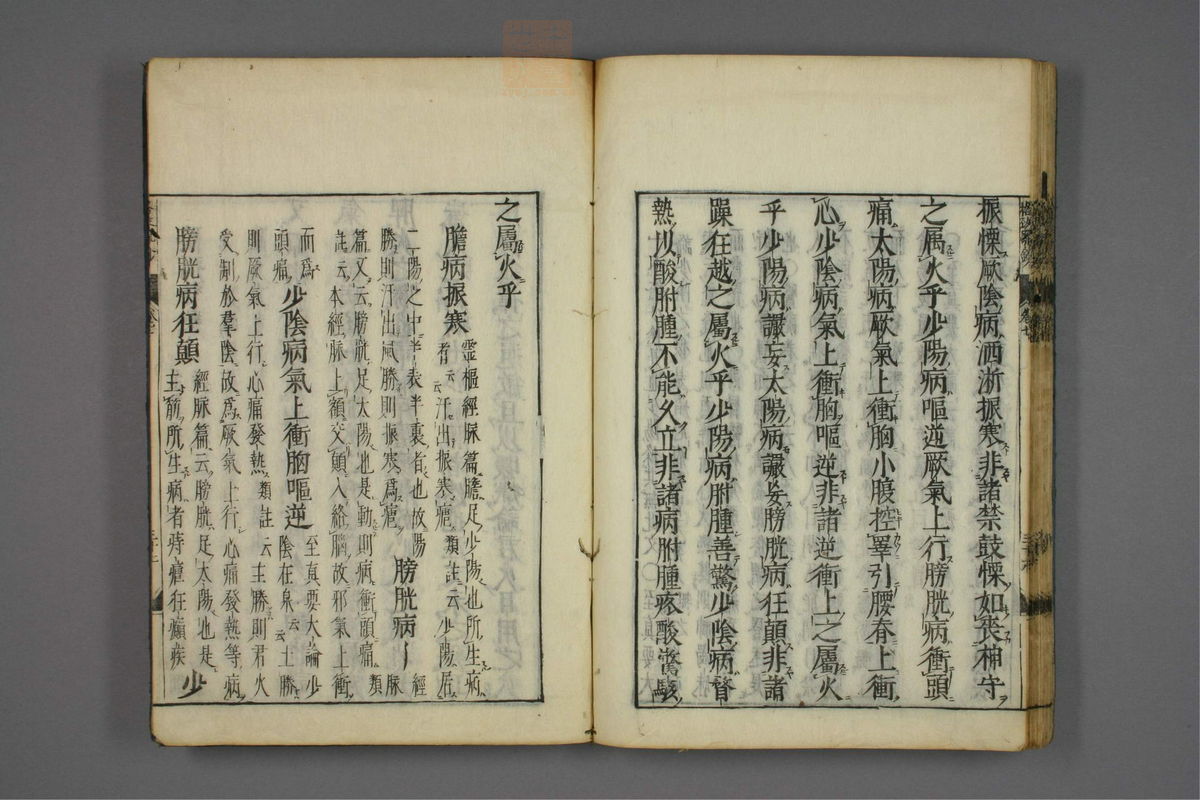 振慄厥陰病洒淅振寒非諸禁鼓慄如喪神守
之属火乎少陽病嘔逆厥氣上行膀胱病衝頭
痛太陽病厥氣上衝胸小腹控睪引腰脊上衝
心少陰病氣上衝胸嘔逆非諸逆衝上之屬火
乎少陽病讝妄太陽病讝妄膀胱病狂顛非諸
躁狂越之屬火乎少陽病胕腫善驚少陰病瞀
熱以酸胕腫不能久立非諸病胕腫疼酸驚駭
之屬火乎
膽病振寒 靈樞經脉篇膽足少陽也所生病
者云汗出振寒瘧類註云少陽居
二陽之中半表半裏者也故陽
勝則汗出風勝則振寒爲瘧 膀胱病 經脉
篇又云膀胱足太陽也是動則病衝頭痛類
註云本經脉上額交顛入絡腦故邪氣上衝
而爲頭痛 少陰病氣上衝胸嘔逆 至真要大論少
陰在泉云主勝
則厥氣上行心痛發熱類註云主勝則君火
受制於羣陰故爲厥氣上行心痛發熱等病
膀胱病狂顛 經脉篇云膀胱足太陽也是
主筋所生病者痔瘧狂癲疾 少